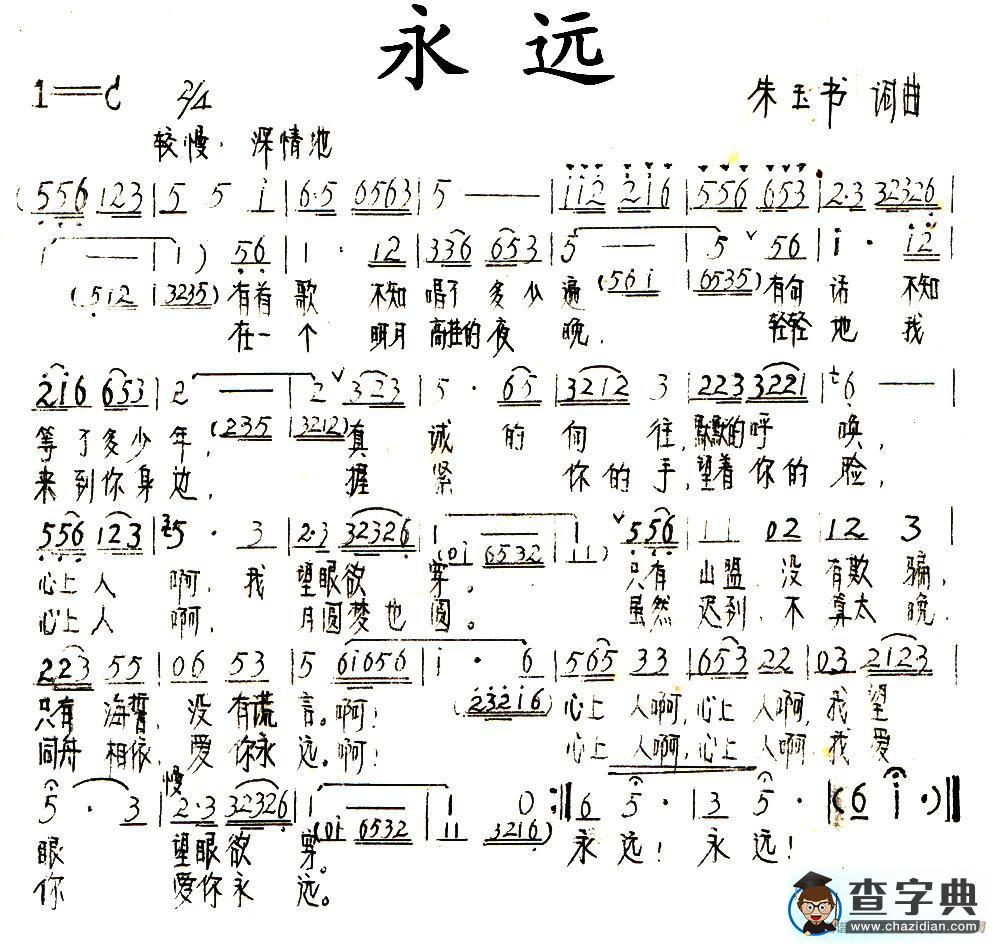 永远
1=C 2/4
朱玉书 词曲
较慢．深情地
(556 123 | 5 5 i | 6·5 0563 | 5 — — | ii2 2i6 | 556 653 | 2·3 32326 |
1 — — | 1 ) 56 | 1 · 12 | 336 653 | 5 — — | 5 ˅ 56 | i · i2 |
(512 | 3235) (56i | 6535)
有首歌 不知唱了多少遍 有句话 不知
在一个 明月高挂的夜晚． 轻轻地 我
2i6 653 | 2 — — | 2 ˅ 323 | 5 · 65 | 3212 3 | 223 3221 | 6 — — |
(235 | 3212)
等了多少年， 真诚的向往，默默的呼唤，
来到你身边， 握紧 你的手，望着你的脸，
556 123 | 5 · 3 | 2·3 32326 | 1 — — | 1 ˅ 556 | 11 02 | 12 3 |
(0i 6532 | 11)
心上人 啊，我 望眼欲穿。 只有 山盟．没有欺骗，
心上人 啊， 月圆梦也圆。 虽然 迟到．不算太晚．
223 55 | 06 53 | 5 6i656 | i · 6 | 565 33 | 653 22 | 03 2123 |
(232i6)
只有 海誓，没有谎言。啊！ 心上 人啊，心上 人啊，我望
同舟 相依，爱你永远。啊！ 心上 人啊，心上 人啊，我爱
慢
5 · 3 | 2·3 32326 | 1 — — | 1 0 :‖ 6 5 · | 3 5 · | (6 i ·)‖
(0i 6532 | 11 3216)
眼 望眼欲穿。 永 远！ 永 远！
你 爱你永 远。
查字典
www.chazidian.com